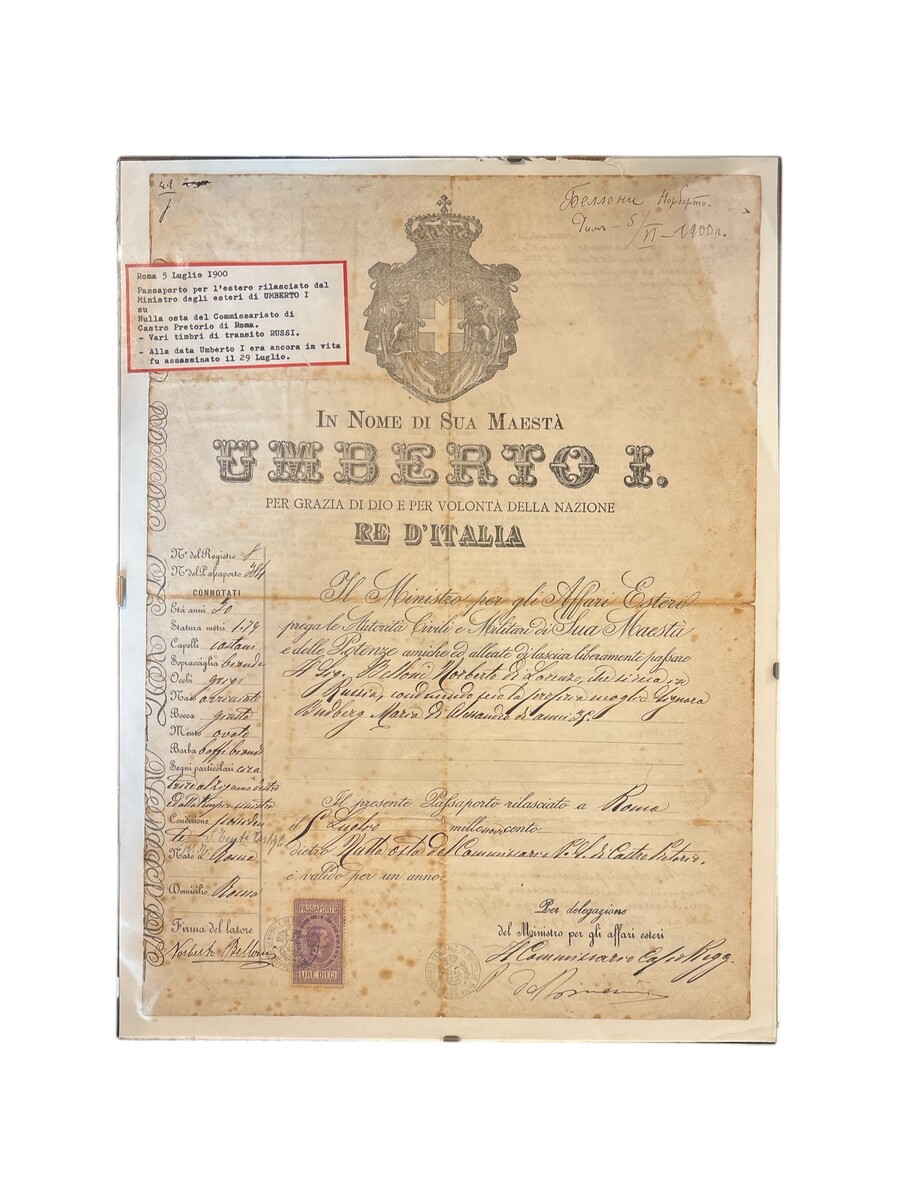 49
Беллони Норберто.
Римъ - 5/VI - 1900 г.
Roma 5 Luglio 1900
Passaporto per l'estero rilasciato dal
Ministro degli esteri di UMBERTO I
su
Nulla osta del Commissariato di
Castro Pretorio di Roma.
- Vari timbri di transito RUSSI.
- Alla data Umberto I era ancora in vita
fu assassinato il 29 Luglio.
IN NOME DI SUA MAESTÀ
UMBERTO I.
PER GRAZIA DI DIO E PER VOLONTÀ DELLA NAZIONE
RE D'ITALIA
N.º del Registro 8
N.º del Passaporto 384
CONNOTATI
Età anni 30
Statura metri 1.79
Capelli castani
Sopracciglia bionde
Occhi grigi
Naso arricciato
Bocca giusta
Mento ovale
Barba baffi biondi
Segni particolari cica
trice al
Condizione possiden
te
Nato a Roma
Domicilio Roma
Firma del latore
Norberto Belloni
Il Ministro per gli Affari Esteri
prega le Autorità Civili e Militari di Sua Maestà
e delle Potenze amiche ed alleate di lasciar liberamente passare
Il Sig. Belloni Norberto di Lorenzo, che si reca in
Russia, conducendo seco la propria moglie Signora
Budberg Maria di Alessandro di anni
Il presente Passaporto rilasciato a Roma
il 5 Luglio millenovecento
dietro Nulla osta del Commissario P.S. di Castro Pretorio.
è valido per un anno.
PASSAPORTO
LIRE DIECI
Per delegazione
del Ministro per gli affari esteri
Il Commissario Capo